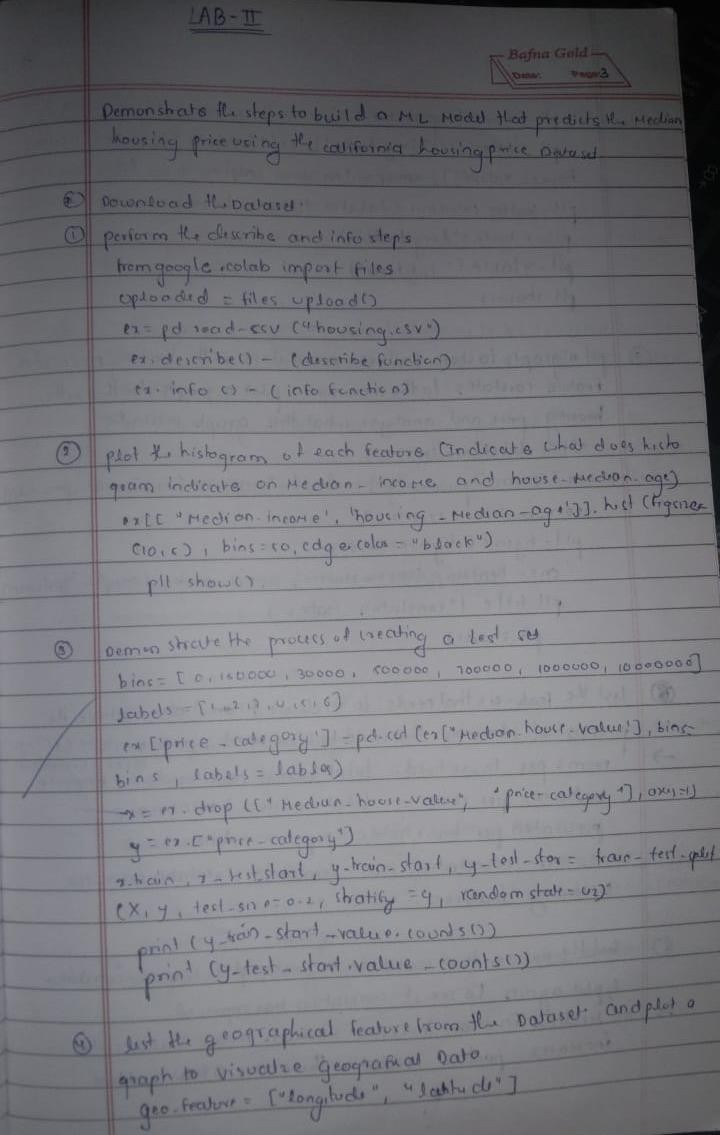 LAB-II
Bafna Gold
Date: Page: 3
Demonstrate the steps to build a ML Model that predicts the Median
housing price using the california housing price Dataset
Download the Dataset.
① perform the describe and info steps
from google.colab import files
uploaded = files.upload()
ex = pd.read-csv ("housing.csv")
ex.describe() - (describe function)
ex.info () - (info function)
② plot the histogram of each feature (indicate what does histo
gram indicate on Median-income and house-Median-age)
ex[["Median-income", 'housing-Median-age']].hist (figsize=
(10,5), bins=50, edgecolor="black")
plt show()
③ Demonstrate the process of creating a test set
bins= [0, 150000, 30000, 500000, 700000, 1000000, 10000000]
labels = [1,2,3,4,5,6]
ex['price-category'] = pd.cut(ex["Median.house-value"], bins=
bins, labels=labels)
x= ex.drop (["Median-house-value", "price-category"], axis=1)
y= ex.["price-category"]
x.train, x-test.start, y-train-start, y-test-star = train-test-split
(X, y, test-size=0.2, stratify=y, random state=42)
print (y-train-start-value.counts())
print (y-test-start.value-counts())
④ list the geographical feature from the Dataset and plot a
graph to visualize Data
geo.feature= ["longitude", "latitude"]